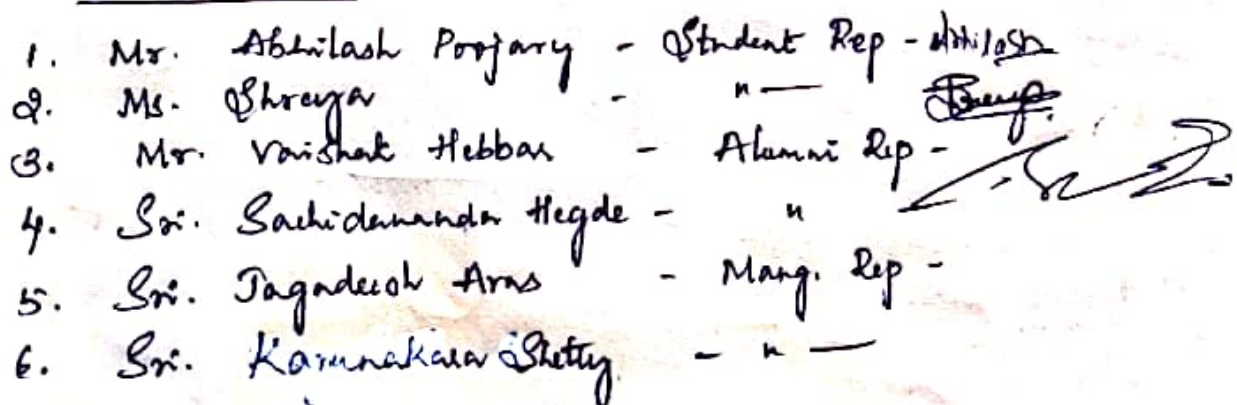 1. Mr. Abhilash Poojary - Student Rep - Abhilash
2. Ms. Shreya - " —
3. Mr. Vaishak Hebbar - Alumni Rep -
4. Sri. Sachidananda Hegde - "
5. Sri. Jagadeesh Aras - Mang. Rep -
6. Sri. Karunakara Shetty - " —